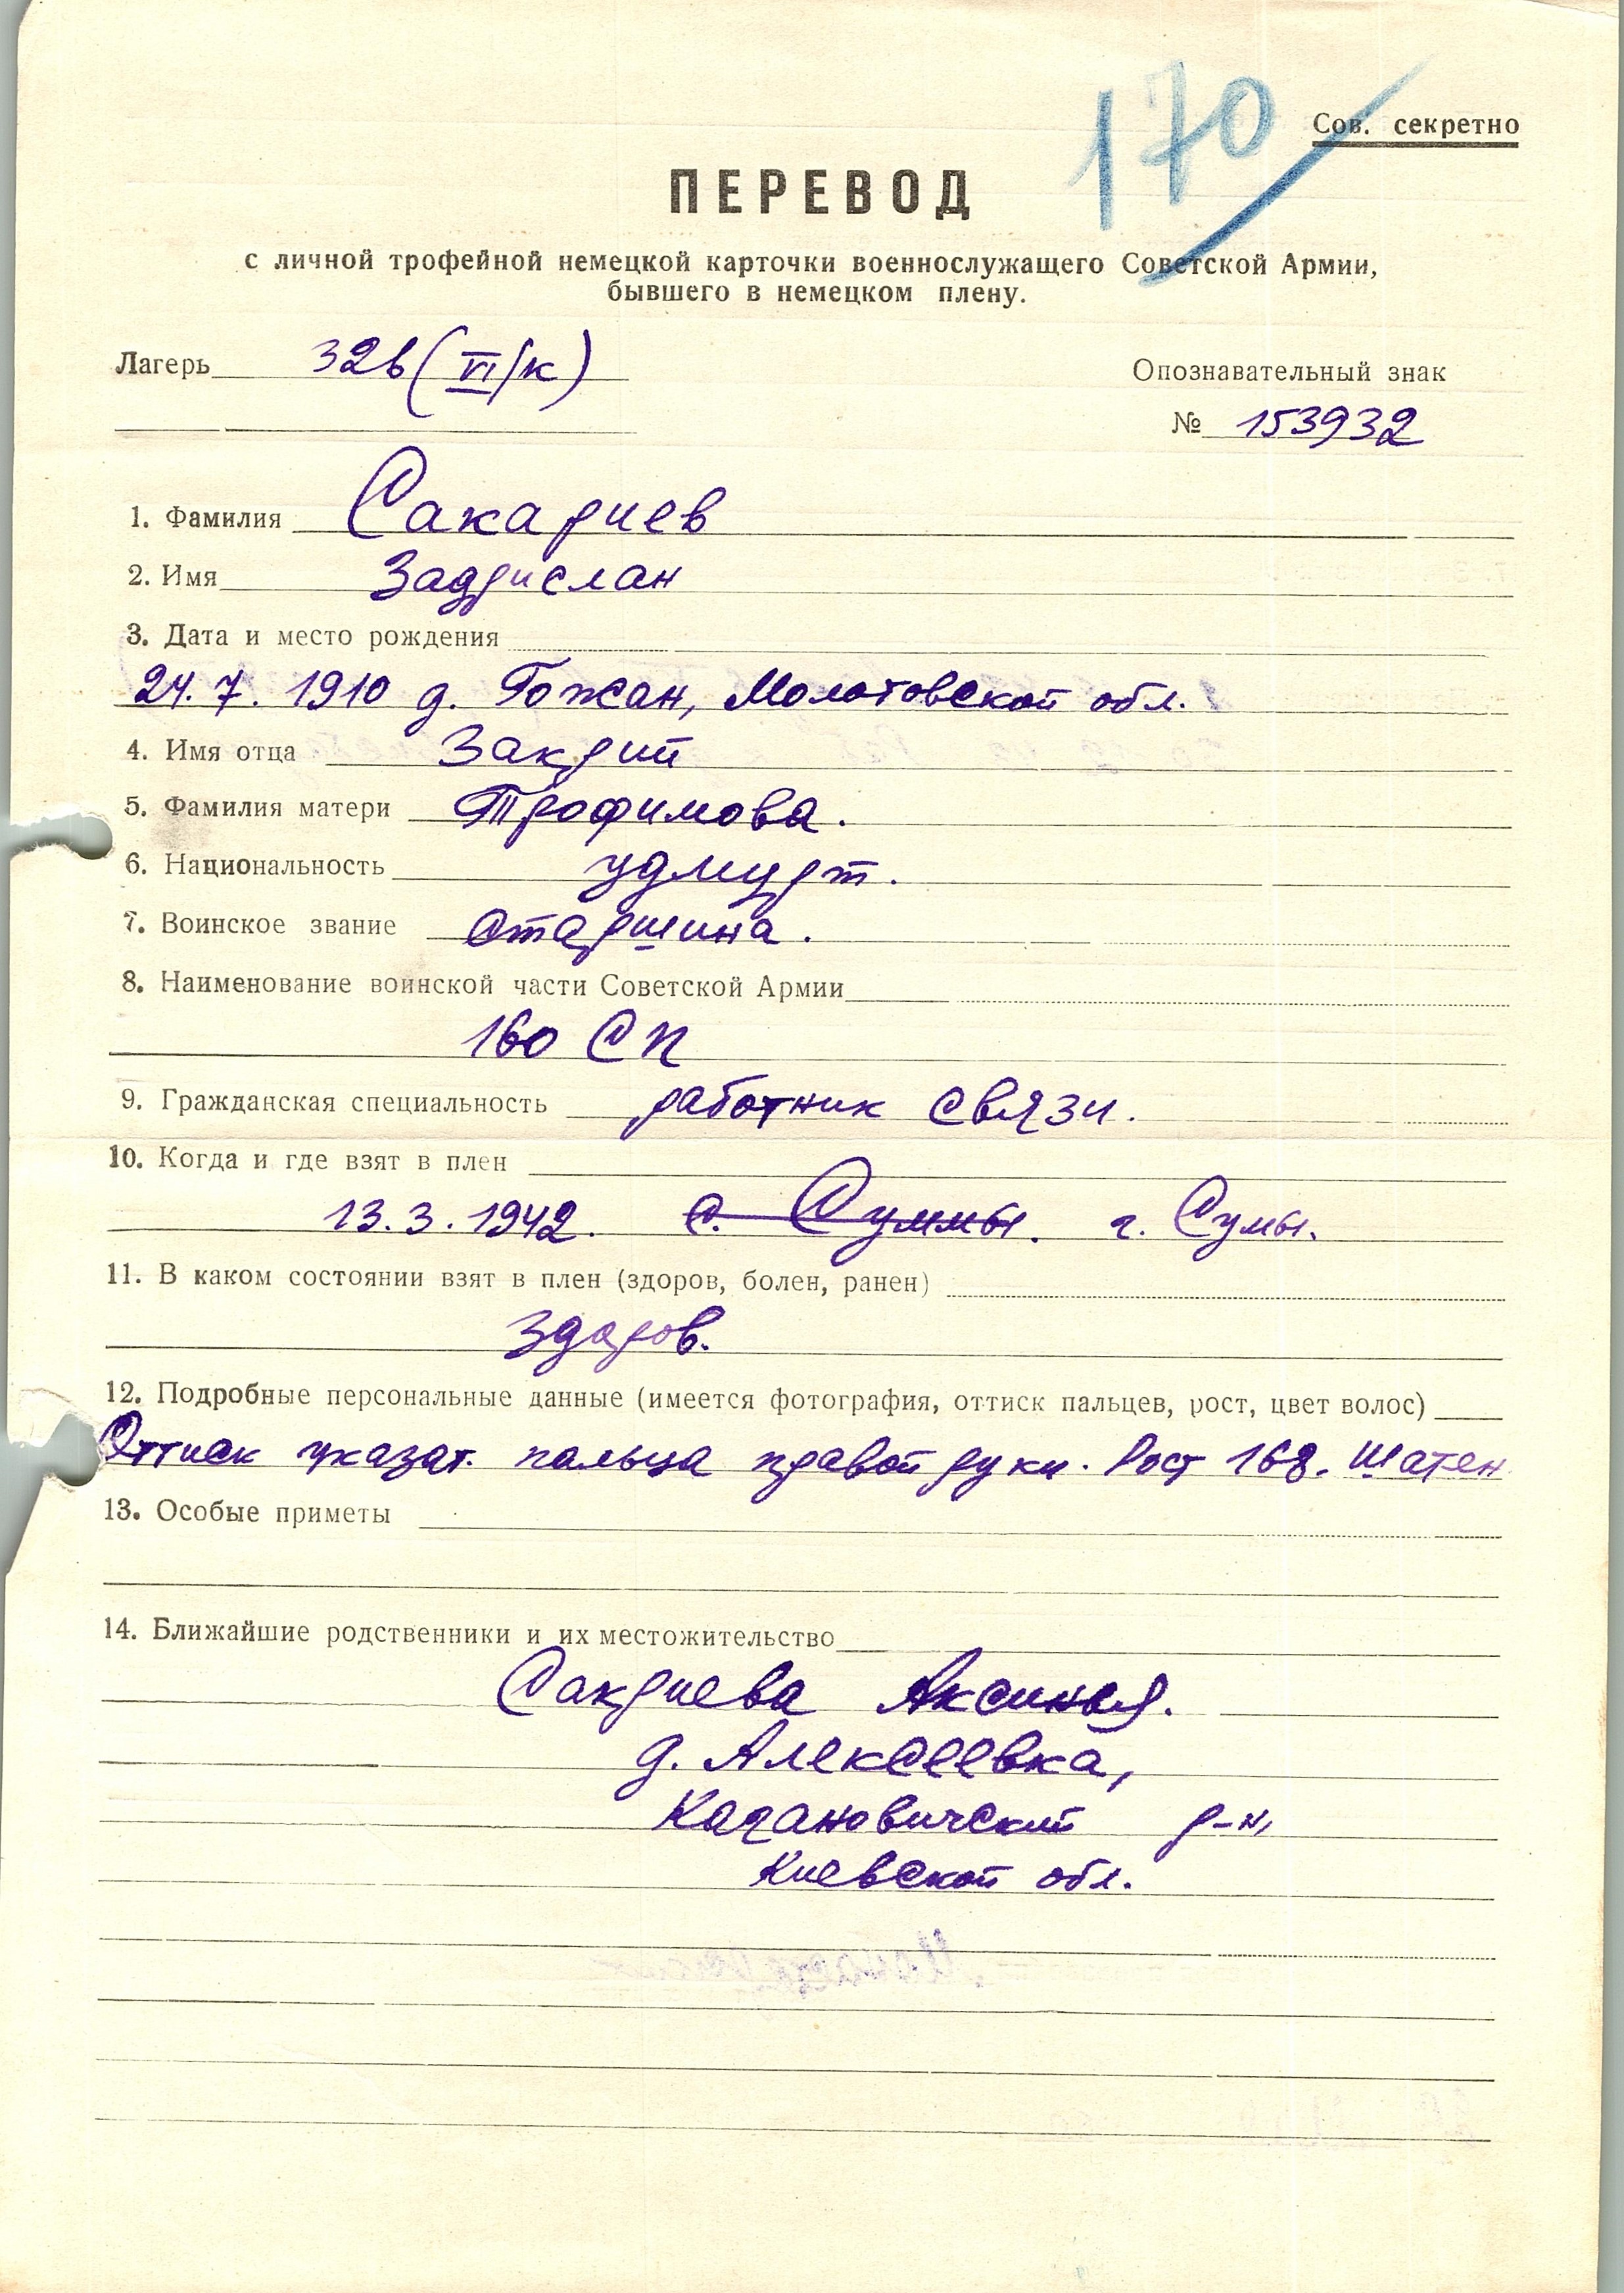 170
Сов. секретно
ПЕРЕВОД
с личной трофейной немецкой карточки военнослужащего Советской Армии,
бывшего в немецком плену.
Лагерь 326 (VI/к)
Опознавательный знак
№ 153932
1. Фамилия Сакариев
2. Имя Задрислан
3. Дата и место рождения
24.7.1910 д. Гожан, Молотовской обл.
4. Имя отца Закрий
5. Фамилия матери Трофимова.
6. Национальность удмурт.
7. Воинское звание старшина.
8. Наименование воинской части Советской Армии
160 СП
9. Гражданская специальность работник связи.
10. Когда и где взят в плен
13.3.1942. с. Суммы. г. Сумы.
11. В каком состоянии взят в плен (здоров, болен, ранен)
Здоров.
12. Подробные персональные данные (имеется фотография, оттиск пальцев, рост, цвет волос)
Оттиск указат. пальца правой руки. Рост 168. Шатен
13. Особые приметы
14. Ближайшие родственники и их местожительство
Сакриева Аксинья.
д. Алексеевка,
Кагановический р-н,
Киевской обл.